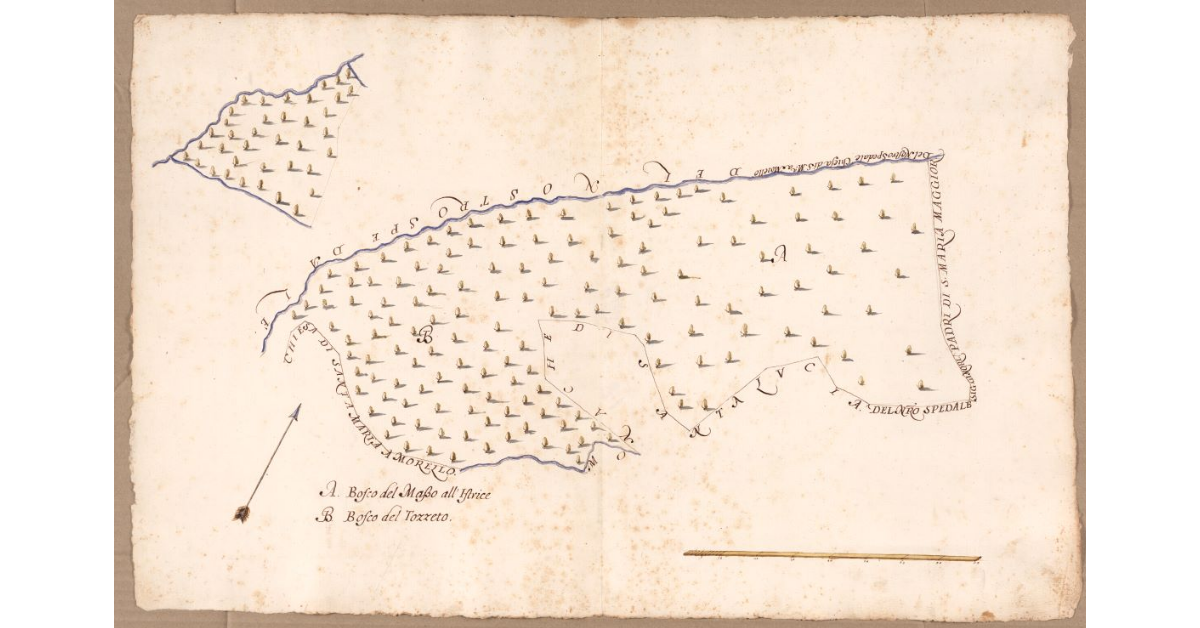 Del Nostro Spedale Chiesa di S. M.a a Morello
LED
NOSTRO SPEDALE
CHIESA DI SANTA MARIA A MORELLO.
A
B
MACCHE DI SANTA LUCIA.
DEL NRO SPEDALE
PADRI DI S. MARIA MAGGIOR
A. Bosco del Masso all' Istrice
B. Bosco del Torreto.